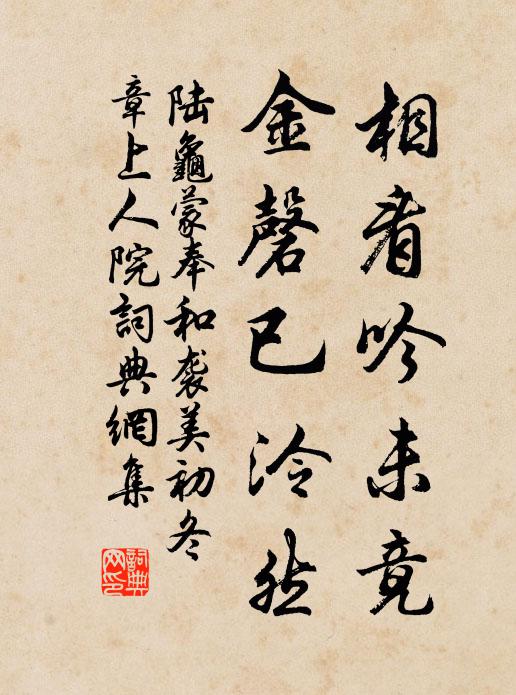 相看吟未竟
金磬已泠然
陆龜蒙奉和袭美初冬
章上人院詞典網集
詞典网印